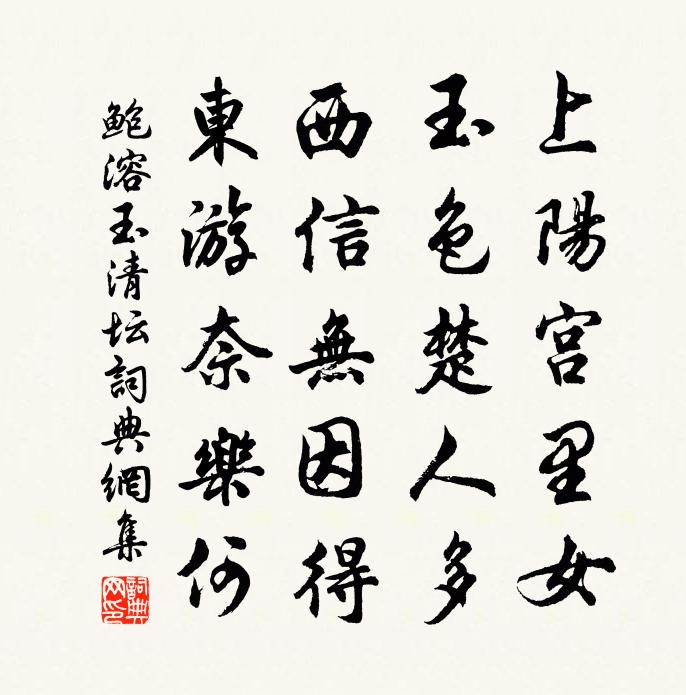 上陽宮里女
玉色楚人多
西信無因得
東游奈樂何
鲍溶玉清坛詞典網集
詞典网印